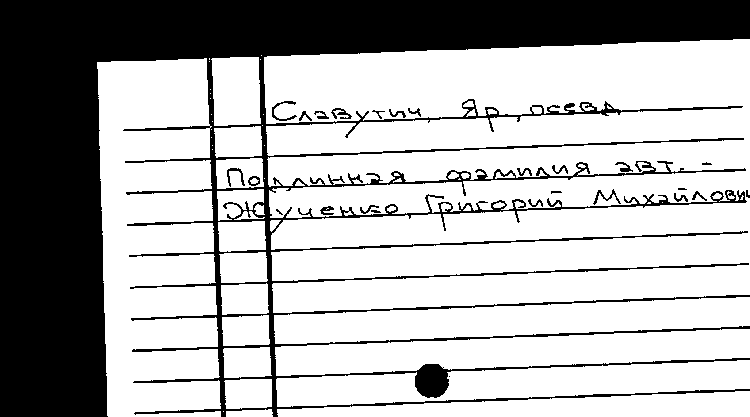 Славутич, Яр., псевд
Подлинная фамилия авт. -
Жученко, Григорий Михайлович